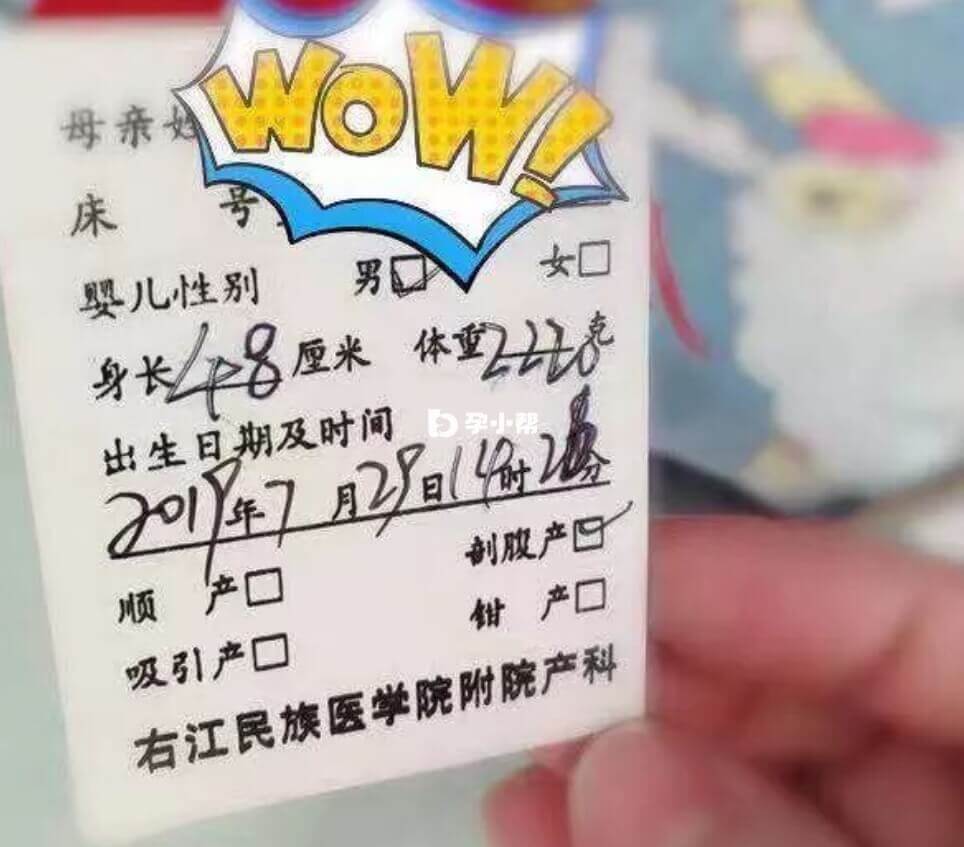 WOW!
母亲姓
床 号
婴儿性别 男☑ 女□
身长48厘米 体重2220克
孕小帮
出生日期及时间
2019年7月29日14时2分
顺 产□ 剖腹产☑
钳 产□
吸引产□
右江民族医学院附院产科